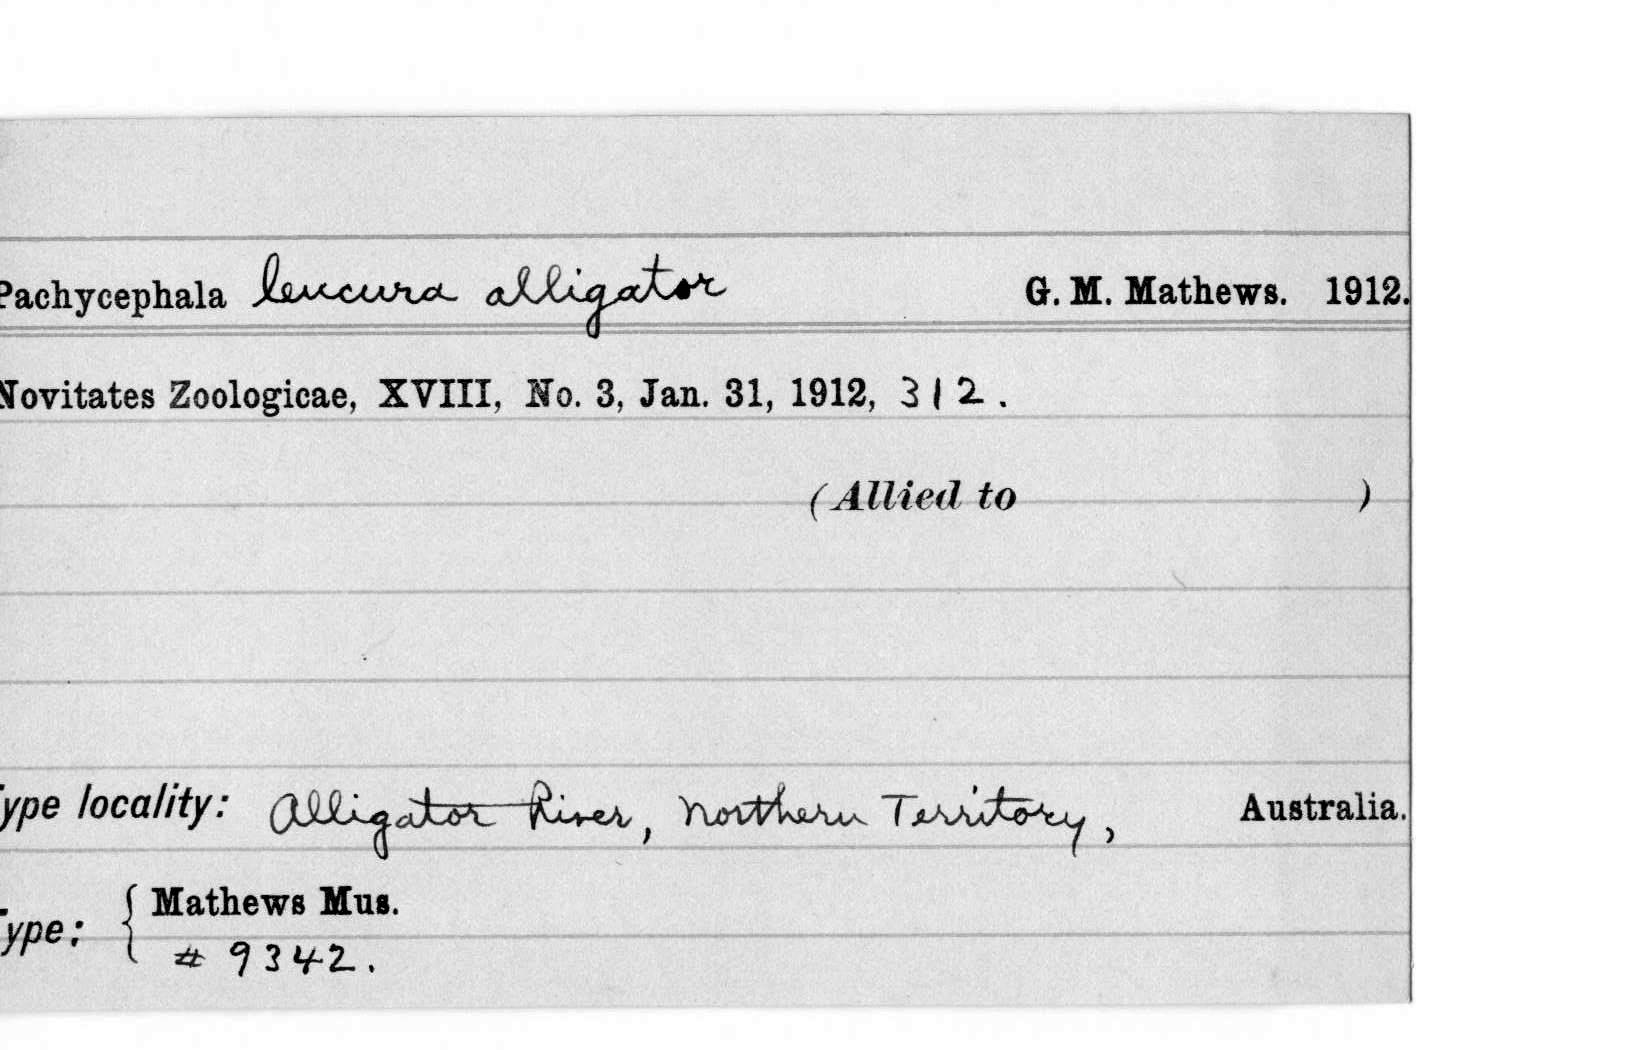 Pachycephala leucura alligator G. M. Mathews. 1912.
Novitates Zoologicae, XVIII, No. 3, Jan. 31, 1912, 312.
(Allied to )
Type locality: Alligator River, Northern Territory, Australia.
Type: { Mathews Mus.
# 9342.